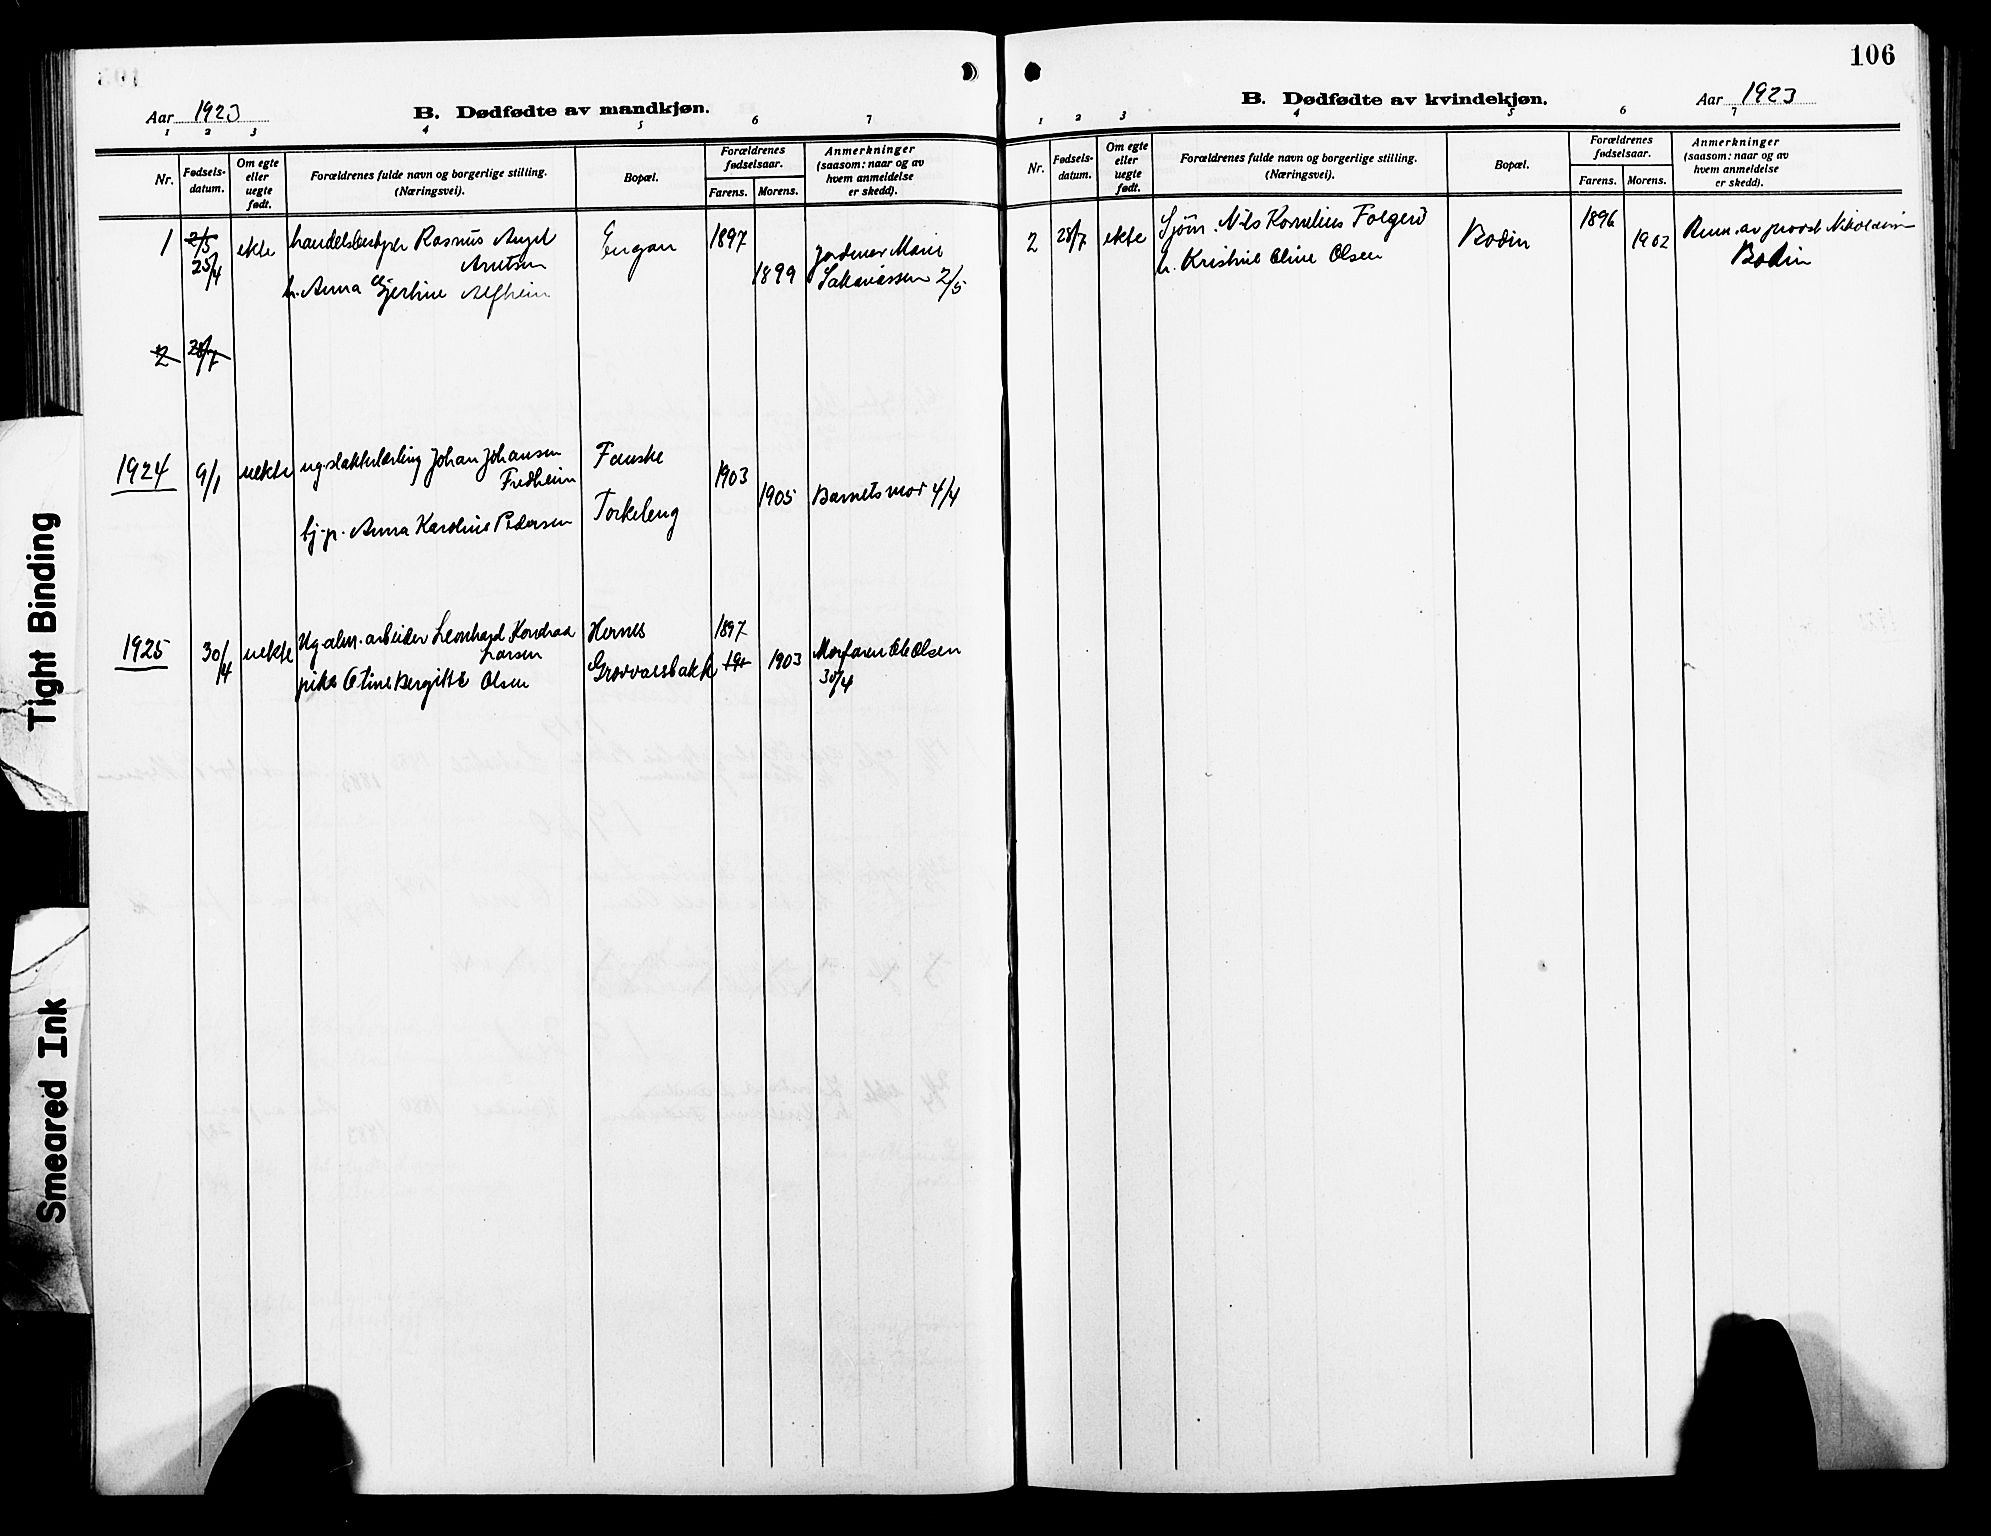 Aar 1923
B. Dødfødte av mandkjøn.
1 2 3 4 5 6 7
Nr.
Fødsels-
datum.
Om egte
eller
uegte
født.
Forældrenes fulde navn og borgerlige stilling.
(Næringsvei).
Bopæl.
Forældrenes
fødselsaar.
Farens. Morens.
Anmerkninger
(saasom: naar og av
hvem anmeldelse
er skedd).
1 2/5 ekte Rasmus Engan 1897 Jordmor Marie
25/4
h. Anna Gjertine Alfheim 1899 Sakariassen 2/5
2 28/7
1924 9/1 uekte ug. slakterlærling Johan Johansen Fauske 1903
Fredheim
1905 Barnets mor 4/4
Anna Karoline Pedersen
1925 30/4 uekte Ug alm. arbeider Leonhard Konrad Hernes 1897
Larsen
pike Bergitte Olsen 19 1903 Morfaren Ole Olsen
30/4
106
B. Dødfødte av kvindekjøn.
Aar 1923
1 2 3 4 5 6 7
Nr.
Fødsels-
datum.
Om egte
eller
uegte
født.
Forældrenes fulde navn og borgerlige stilling.
(Næringsvei).
Bopæl.
Forældrenes
fødselsaar.
Farens. Morens.
Anmerkninger
(saasom: naar og av
hvem anmeldelse
er skedd).
2 28/7 ekte Sjøm. Nils Kornelius Bodin 1896 Anm. av prost
h. Kristine Oline Olsen 1902 Bodin
Tight Binding
Smeared Ink